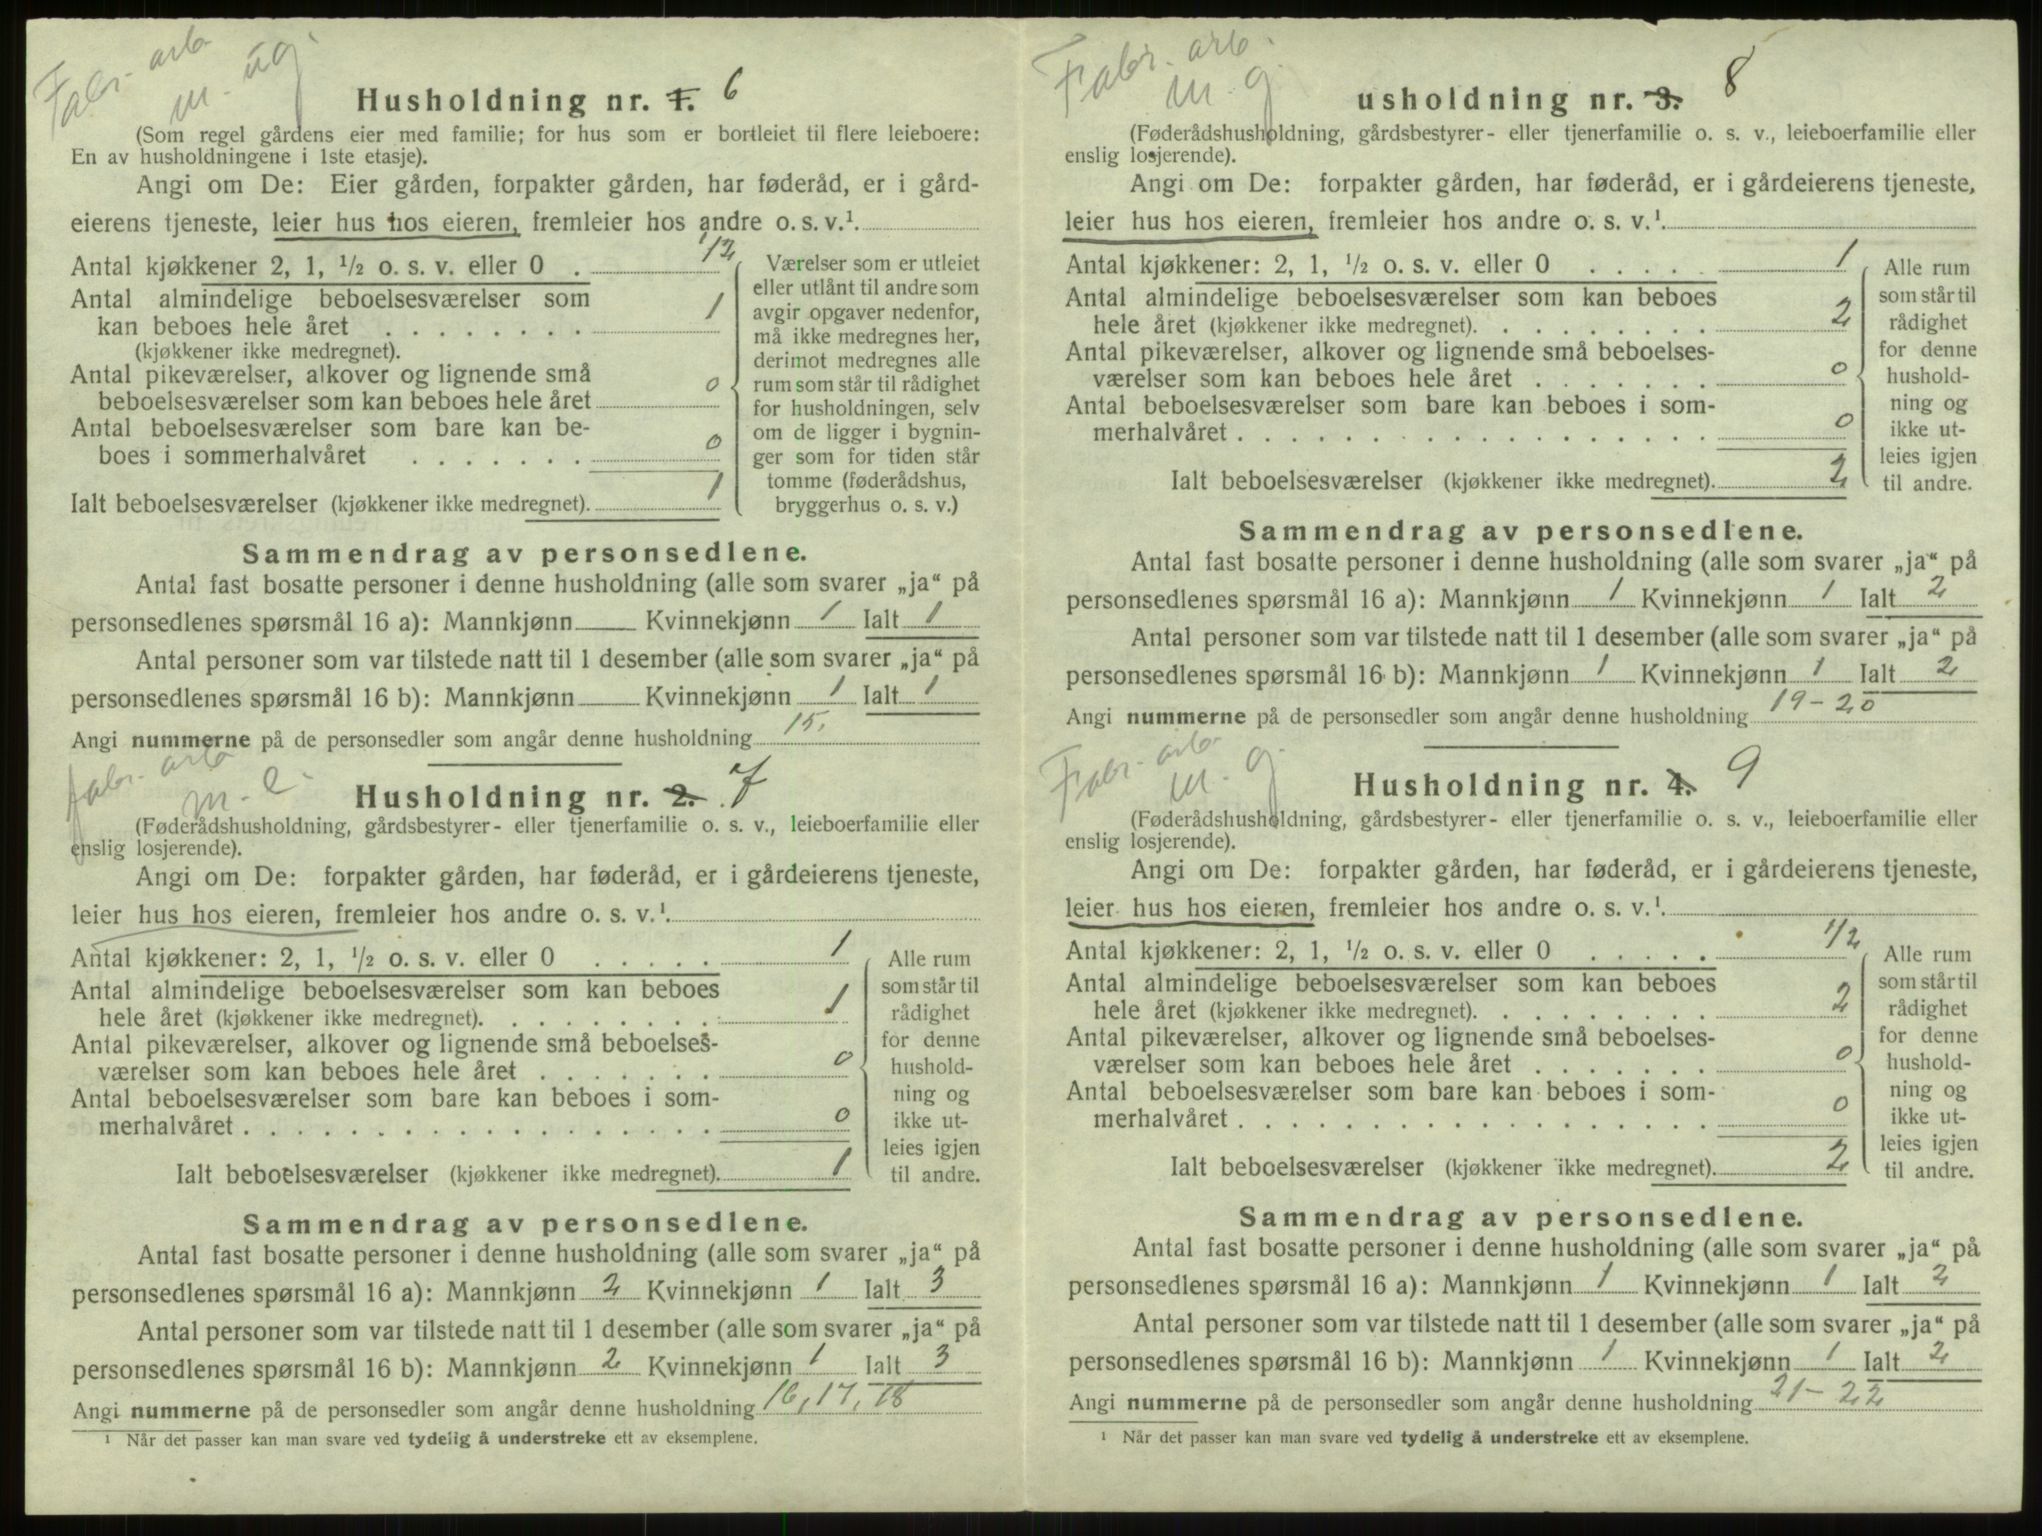 Fabr. arb.
m. ug
Husholdning nr. 1. 6
(Som regel gårdens eier med familie; for hus som er bortleiet til flere leieboere:
En av husholdningene i 1ste etasje).
Angi om De: Eier gården, forpakter gården, har føderåd, er i gård-
eierens tjeneste, leier hus hos eieren, fremleier hos andre o. s. v.¹
Antal kjøkkener 2, 1, ½ o. s. v. eller 0 . 1/2
Antal almindelige beboelsesværelser som
kan beboes hele året . . . . . . . . 1
(kjøkkener ikke medregnet).
Antal pikeværelser, alkover og lignende små
beboelsesværelser som kan beboes hele året 0
Antal beboelsesværelser som bare kan be-
boes i sommerhalvåret . . . . . . . 0
Ialt beboelsesværelser (kjøkkener ikke medregnet). 1
Værelser som er utleiet
eller utlånt til andre som
avgir opgaver nedenfor,
må ikke medregnes her,
derimot medregnes alle
rum som står til rådighet
for husholdningen, selv
om de ligger i bygnin-
ger som for tiden står
tomme (føderådshus,
bryggerhus o. s. v.)
Sammendrag av personsedlene.
Antal fast bosatte personer i denne husholdning (alle som svarer „ja“ på
personsedlenes spørsmål 16 a): Mannkjønn Kvinnekjønn 1 Ialt 1
Antal personer som var tilstede natt til 1 desember (alle som svarer „ja“ på
personsedlenes spørsmål 16 b): Mannkjønn Kvinnekjønn 1 Ialt 1
Angi nummerne på de personsedler som angår denne husholdning 15.
fabr. arb
m. e.
Husholdning nr. 2. 7
(Føderådshusholdning, gårdsbestyrer- eller tjenerfamilie o. s. v., leieboerfamilie eller
enslig losjerende).
Angi om De: forpakter gården, har føderåd, er i gårdeierens tjeneste,
leier hus hos eieren, fremleier hos andre o. s. v.¹
Antal kjøkkener: 2, 1, ½ o. s. v. eller 0 . . . . . 1
Antal almindelige beboelsesværelser som kan beboes
hele året (kjøkkener ikke medregnet). . . . . . . . . 1
Antal pikeværelser, alkover og lignende små beboelses-
værelser som kan beboes hele året . . . . . . . 0
Antal beboelsesværelser som bare kan beboes i som-
merhalvåret . . . . . . . . . . . . . . . . . . 0
Ialt beboelsesværelser (kjøkkener ikke medregnet). 1
Alle rum
som står til
rådighet
for denne
hushold-
ning og
ikke ut-
leies igjen
til andre.
Sammendrag av personsedlene.
Antal fast bosatte personer i denne husholdning (alle som svarer „ja“ på
personsedlenes spørsmål 16 a): Mannkjønn 2 Kvinnekjønn 1 Ialt 3
Antal personer som var tilstede natt til 1 desember (alle som svarer „ja“ på
personsedlenes spørsmål 16 b): Mannkjønn 2 Kvinnekjønn 1 Ialt 3
Angi nummerne på de personsedler som angår denne husholdning 16, 17, 18
¹ Når det passer kan man svare ved tydelig å understreke ett av eksemplene.
Fabr. arb.
m. g
usholdning nr. 3. 8
(Føderådshusholdning, gårdsbestyrer- eller tjenerfamilie o. s. v., leieboerfamilie eller
enslig losjerende).
Angi om De: forpakter gården, har føderåd, er i gårdeierens tjeneste,
leier hus hos eieren, fremleier hos andre o. s. v.¹
Antal kjøkkener: 2, 1, ½ o. s. v. eller 0 . . . . . 1
Antal almindelige beboelsesværelser som kan beboes
hele året (kjøkkener ikke medregnet). . . . . . . . . 2
Antal pikeværelser, alkover og lignende små beboelses-
værelser som kan beboes hele året . . . . . . . 0
Antal beboelsesværelser som bare kan beboes i som-
merhalvåret . . . . . . . . . . . . . . . . . . 0
Ialt beboelsesværelser (kjøkkener ikke medregnet). 2
Alle rum
som står til
rådighet
for denne
hushold-
ning og
ikke ut-
leies igjen
til andre.
Sammendrag av personsedlene.
Antal fast bosatte personer i denne husholdning (alle som svarer „ja“ på
personsedlenes spørsmål 16 a): Mannkjønn 1 Kvinnekjønn 1 Ialt 2
Antal personer som var tilstede natt til 1 desember (alle som svarer „ja“ på
personsedlenes spørsmål 16 b): Mannkjønn 1 Kvinnekjønn 1 Ialt 2
Angi nummerne på de personsedler som angår denne husholdning 19-20
Fabr. arb.
m. g
Husholdning nr. 4. 9
(Føderådshusholdning, gårdsbestyrer- eller tjenerfamilie o. s. v., leieboerfamilie eller
enslig losjerende).
Angi om De: forpakter gården, har føderåd, er i gårdeierens tjeneste,
leier hus hos eieren, fremleier hos andre o. s. v.¹
Antal kjøkkener: 2, 1, ½ o. s. v. eller 0 . . . . . 1/2
Antal almindelige beboelsesværelser som kan beboes
hele året (kjøkkener ikke medregnet). . . . . . . . . 2
Antal pikeværelser, alkover og lignende små beboelses-
værelser som kan beboes hele året . . . . . . . 0
Antal beboelsesværelser som bare kan beboes i som-
merhalvåret . . . . . . . . . . . . . . . . . . 0
Ialt beboelsesværelser (kjøkkener ikke medregnet). 2
Alle rum
som står til
rådighet
for denne
hushold-
ning og
ikke ut-
leies igjen
til andre.
Sammendrag av personsedlene.
Antal fast bosatte personer i denne husholdning (alle som svarer „ja“ på
personsedlenes spørsmål 16 a): Mannkjønn 1 Kvinnekjønn 1 Ialt 2
Antal personer som var tilstede natt til 1 desember (alle som svarer „ja“ på
personsedlenes spørsmål 16 b): Mannkjønn 1 Kvinnekjønn 1 Ialt 2
Angi nummerne på de personsedler som angår denne husholdning 21-22
¹ Når det passer kan man svare ved tydelig å understreke ett av eksemplene.